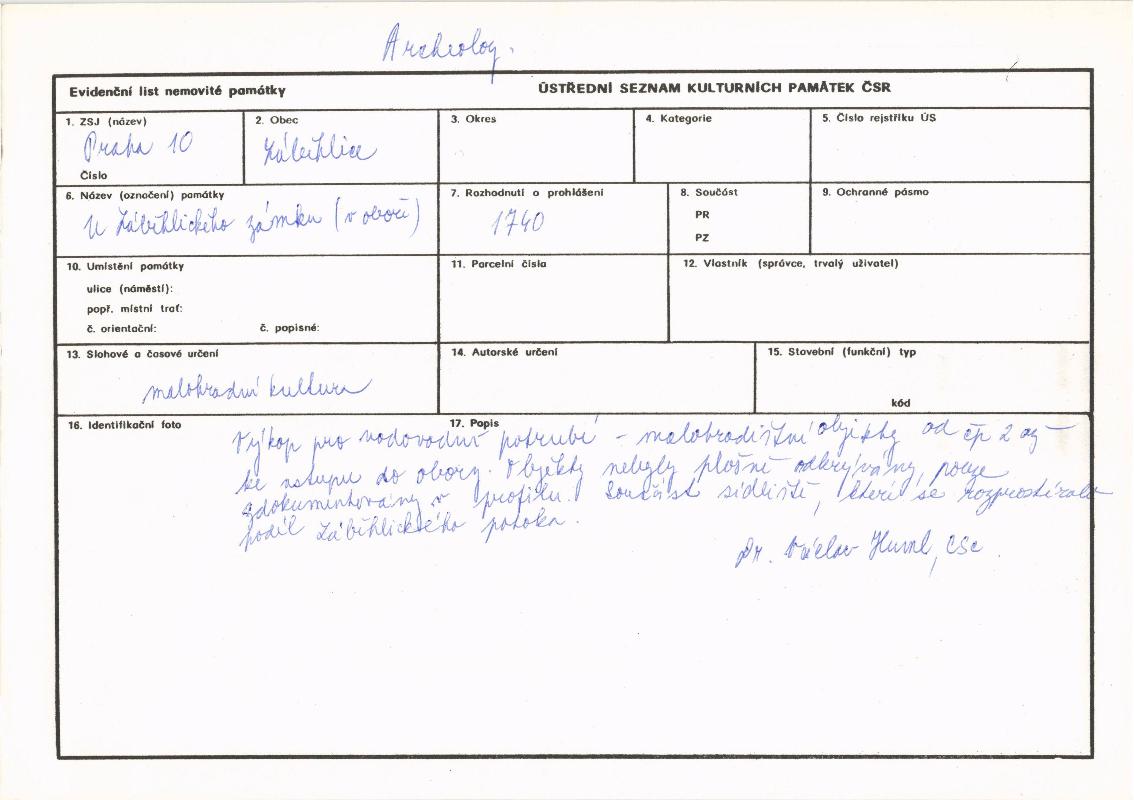 Archeolog.
Evidenční list nemovité památky
ÚSTŘEDNÍ SEZNAM KULTURNÍCH PAMÁTEK ČSR
1. ZSJ (název)
Praha 10
Číslo
2. Obec
Záběhlice
3. Okres
4. Kategorie
5. Číslo rejstříku ÚS
6. Název (označení) památky
U Záběhlického zámku (v oboře)
7. Rozhodnutí o prohlášení
1740
8. Součást
PR
PZ
9. Ochranné pásmo
10. Umístění památky
ulice (náměstí):
popř. místní trať:
č. orientační:
č. popisné:
11. Parcelní čísla
12. Vlastník (správce, trvalý uživatel)
13. Slohové a časové určení
malohradní kultura
14. Autorské určení
15. Stavební (funkční) typ
kód
16. Identifikační foto
17. Popis
Výkop pro vodovodní potrubí - malohradištní objekty od čp 2 až
ke vstupu do obory. Objekty nebyly plošně odkrývány, pouze
zdokumentovány v profilu. Součást sídliště, které se rozprostíralo
podél Záběhlického potoka.
Dr. Václav Huml, CSc.